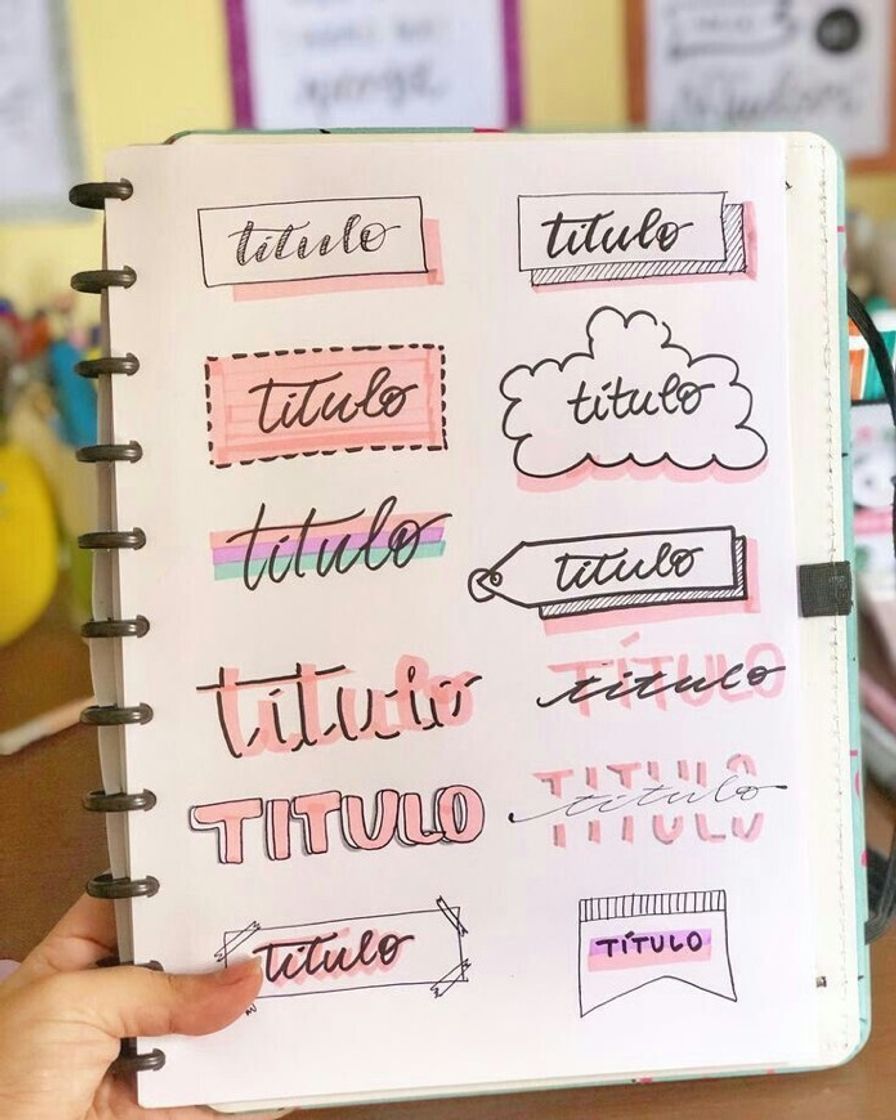 título
título
título
título
título
título
título
TÍTULO
titulo
TITULO
TITULO
titulo
título
TÍTULO